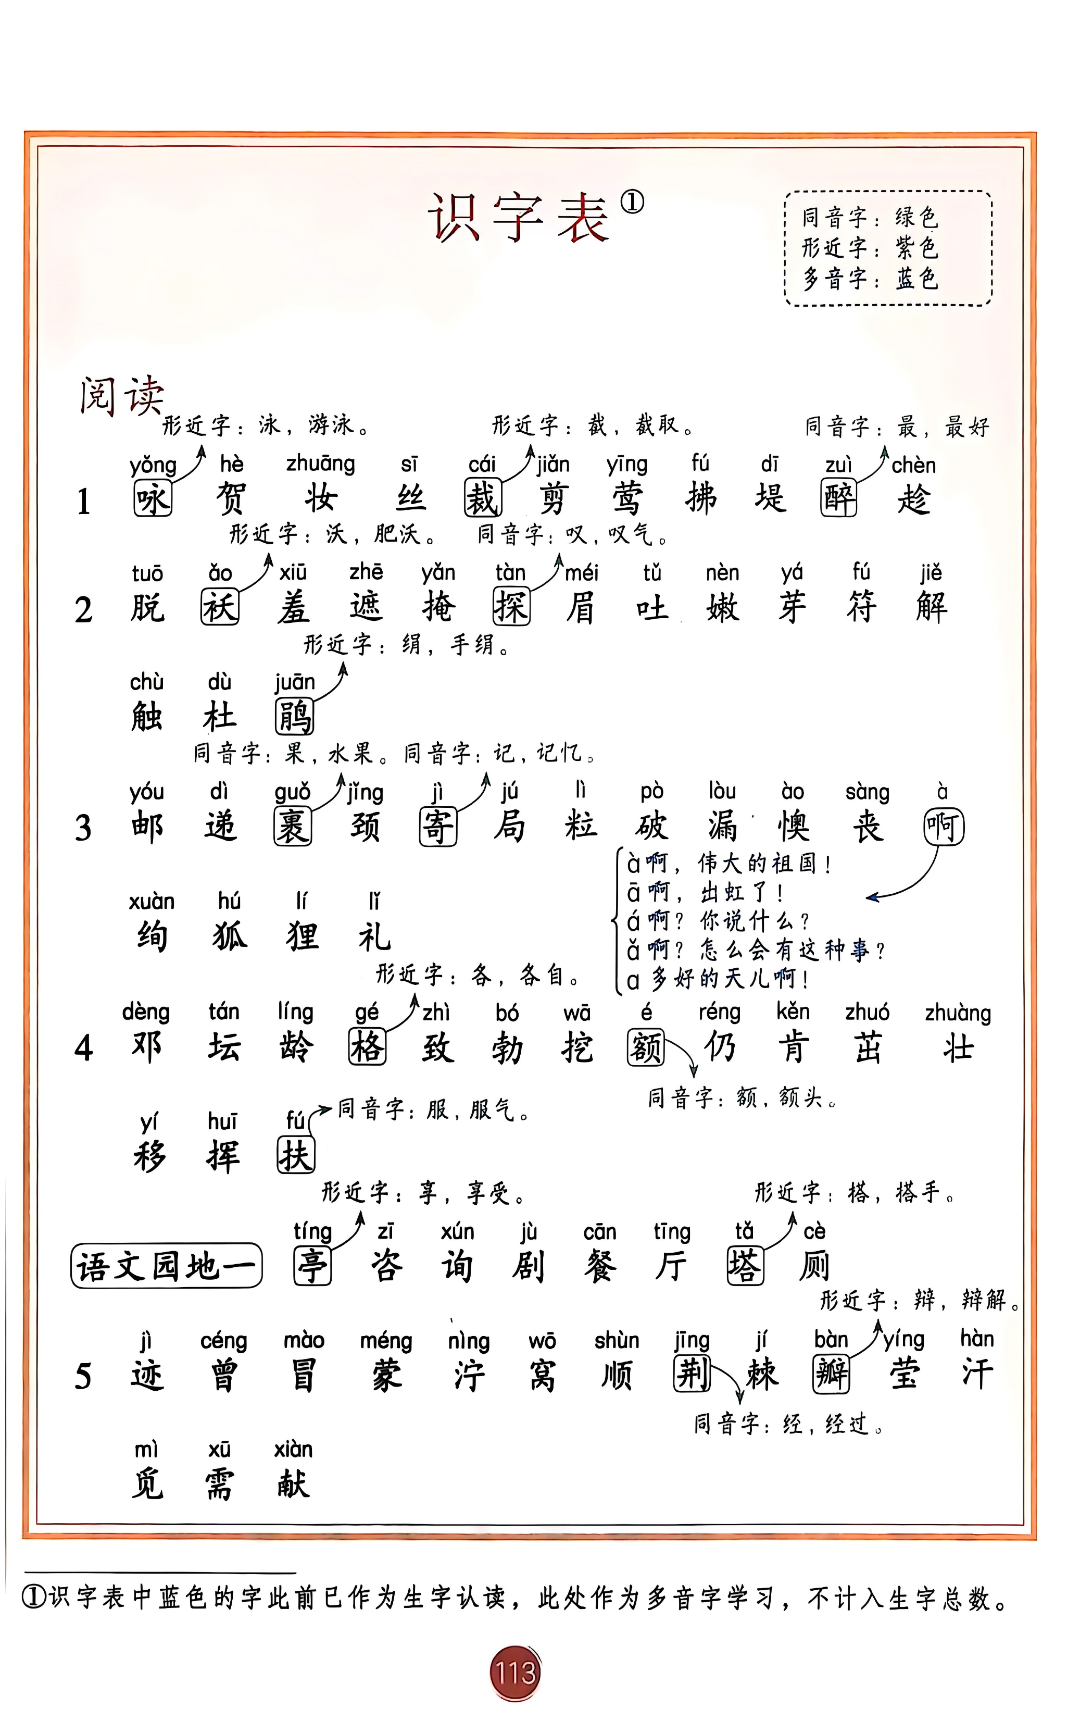 识字表①
同音字：绿色
形近字：紫色
多音字：蓝色
阅读
形近字：泳，游泳。 形近字：截，截取。 同音字：最，最好
yǒng hè zhuāng sī cái jiǎn yīng fú dī zuì chèn
1 咏 贺 妆 丝 裁 剪 莺 拂 堤 醉 趁
形近字：沃，肥沃。 同音字：叹，叹气。
tuō ǎo xiū zhē yǎn tàn méi tǔ nèn yá fú jiě
2 脱 袄 羞 遮 掩 探 眉 吐 嫩 芽 符 解
形近字：绢，手绢。
chù dù juān
触 杜 鹃
同音字：果，水果。 同音字：记，记忆。
yóu dì guǒ jǐng jì jú lì pò lòu ào sàng à
3 邮 递 裹 颈 寄 局 粒 破 漏 懊 丧 啊
à啊，伟大的祖国！
ā啊，出虹了！
á啊？你说什么？
ǎ啊？怎么会有这种事？
a多好的天儿啊！
xuàn hú lí lǐ
绚 狐 狸 礼
形近字：各，各自。
dèng tán líng gé zhì bó wā é réng kěn zhuó zhuàng
4 邓 坛 龄 格 致 勃 挖 额 仍 肯 茁 壮
同音字：额，额头。
yí huī fú
移 挥 扶
同音字：服，服气。
形近字：享，享受。 形近字：搭，搭手。
tíng zī xún jù cān tīng tǎ cè
语文园地一 亭 咨 询 剧 餐 厅 塔 厕
形近字：辩，辩解。
jì céng mào méng nìng wō shùn jīng jí bàn yíng hàn
5 迹 曾 冒 蒙 泞 窝 顺 荆 棘 瓣 莹 汗
同音字：经，经过。
mì xū xiàn
觅 需 献
①识字表中蓝色的字此前已作为生字认读，此处作为多音字学习，不计入生字总数。
113